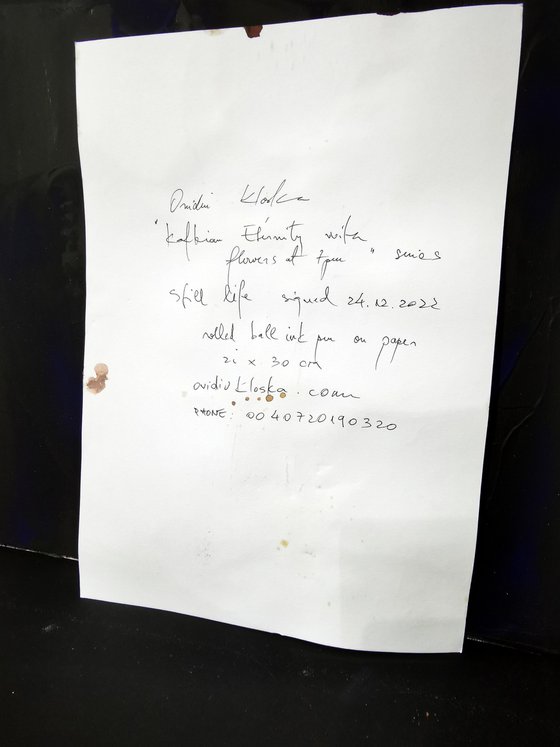 Ovidiu Kloska
"Kafkian Eternity with
flowers at 7pm" series
Still life signed 24.12.2022
rolled ball ink pen on paper
21 x 30 cm
ovidiukloska.com
PHONE: 0040720190320